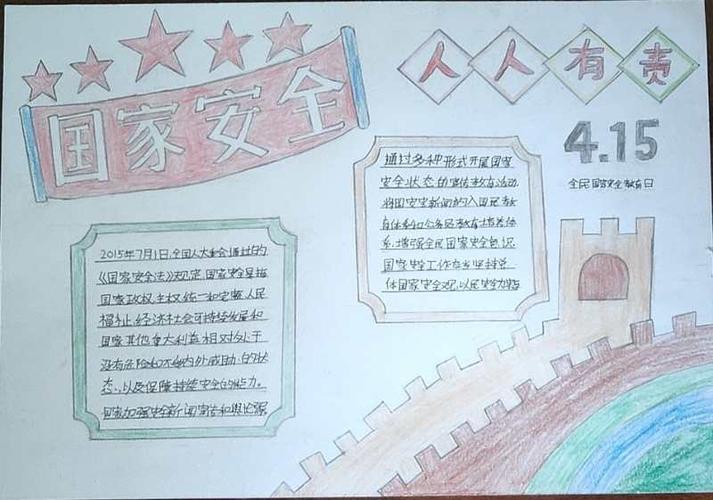 国家安全
人人有责
4.15
全民国家安全教育日
通过多种形式开展国家
安全状态的宣传教育活动,
将国家安全新闻纳入国民教
育体系和公务员教育培养体
系,增强全民国家安全意识
国家安全工作应当坚持总
体国家安全观,以人民安全为宗
2015年7月1日,全国人大常会通过的
《国家安全法》规定,国家安全是指
国家政权,主权,统一和完整,人民
福祉,经济社会可持续发展和
国家其他重大利益相对处于
没有危险和不受内外威胁的状
态,以及保障持续安全的能力。
国家加强安全新闻宣传和舆论